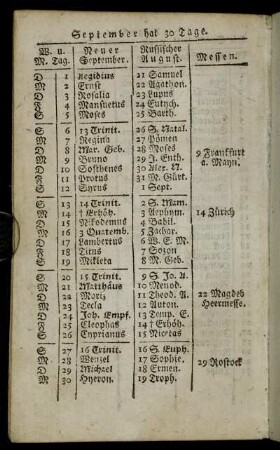 September hat 30 Tage.
W. u. Neuer Russischer Messen.
M. Tag. September. August.
D 1 Aegidius 21 Samuel
M 2 Ernst 22 Agathon.
D 3 Rosalia 23 Lupus
F 4 Mansuetus 24 Eutych.
S 5 Moses 25 Barth.
S 6 13 Trinit. 26 S. Natal.
M 7 Regina 27 Pömen
D 8 Mar. Geb. 28 Moses
M 9 Bruno 29 J. Enth. 9 Frankfurt
D 10 Sosthenes 30 Alex. N. a. Mayn.
F 11 Protus 31 M. Gürt.
S 12 Syrus 1 Sept.
S 13 14 Trinit. 2 S. Mam.
M 14 † Erhöh. 3 Anthym. 14 Zürich
D 15 Nikodemus 4 Babil.
M 16 3 Quatemb. 5 Zachar.
D 17 Lambertus 6 W. E. M.
F 18 Titus 7 Sozon
S 19 Mikleta 8 M. Geb.
S 20 15 Trinit. 9 S. Jo. A.
M 21 Matthäus 10 Menod.
D 22 Moriz 11 Theod. A. 22 Magdeb
M 23 Tecla 12 Auton. Heermesse.
D 24 Joh. Empf. 13 Temp. E.
F 25 Cleophas 14 † Erhöh
S 26 Cyprianus 15 Nicetas
S 27 16 Trinit. 16 S. Euph.
M 28 Wenzel 17 Sophie.
D 29 Michael 18 Ermen. 29 Rostock
M 30 Hyeron. 19 Troph.